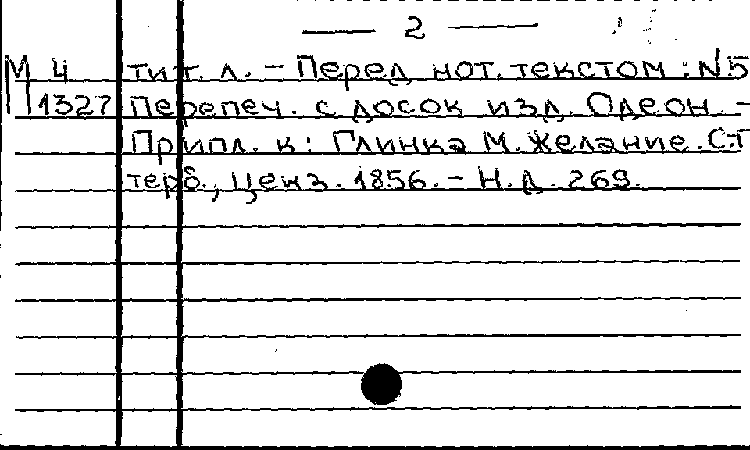 — 2 —
М 4 тит. л. – Перед нот. текстом: N5
1327 Перепеч. с досок изд. Одеон. –
Припл. к: Глинка М. Желание. С.П
терб., Ценз. 1856. – Н.Д. 269.